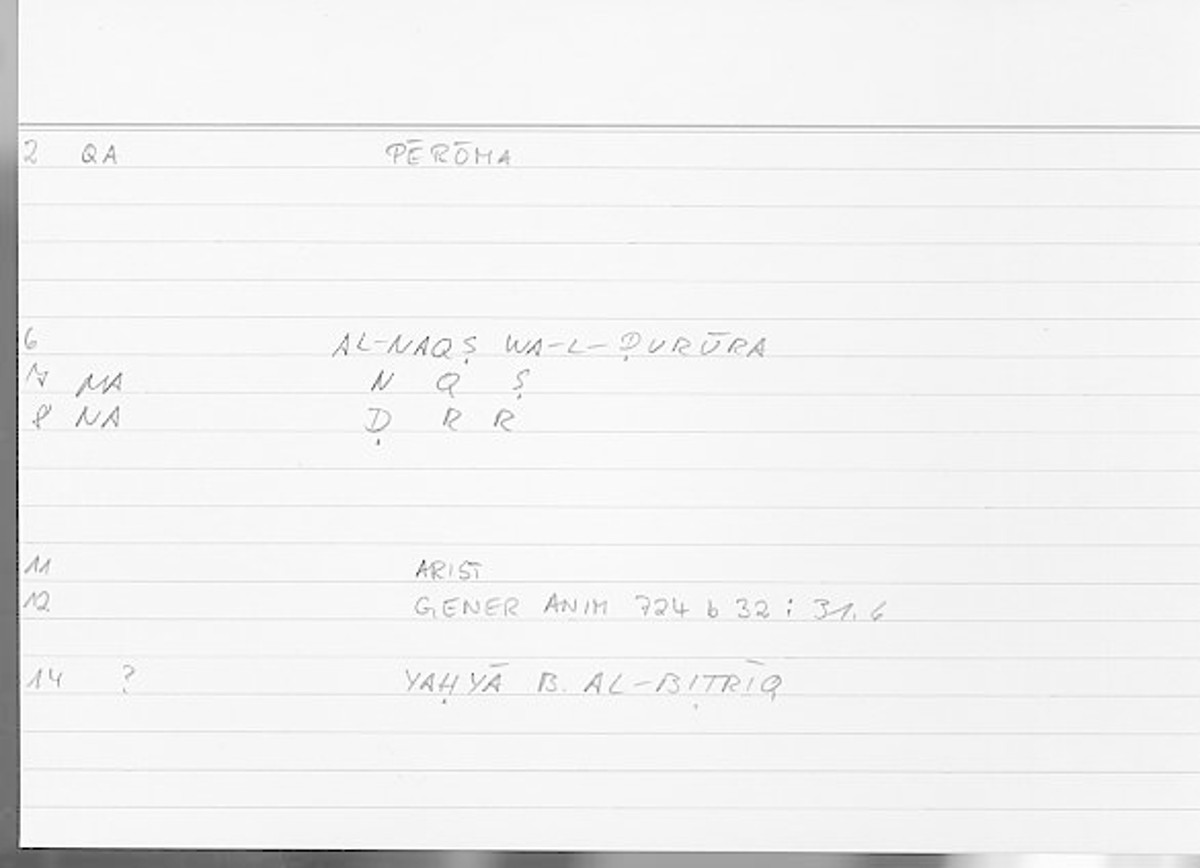 2 QA PĒRŌMA
6 AL-NAQṢ WA-L-ḌURŪRA
7 MA N Q Ṣ
8 NA Ḍ R R
11 ARIST
12 GENER ANIM 724 b 32 : 31.6
14 ? YAḤYĀ B. AL-BIṬRĪQ